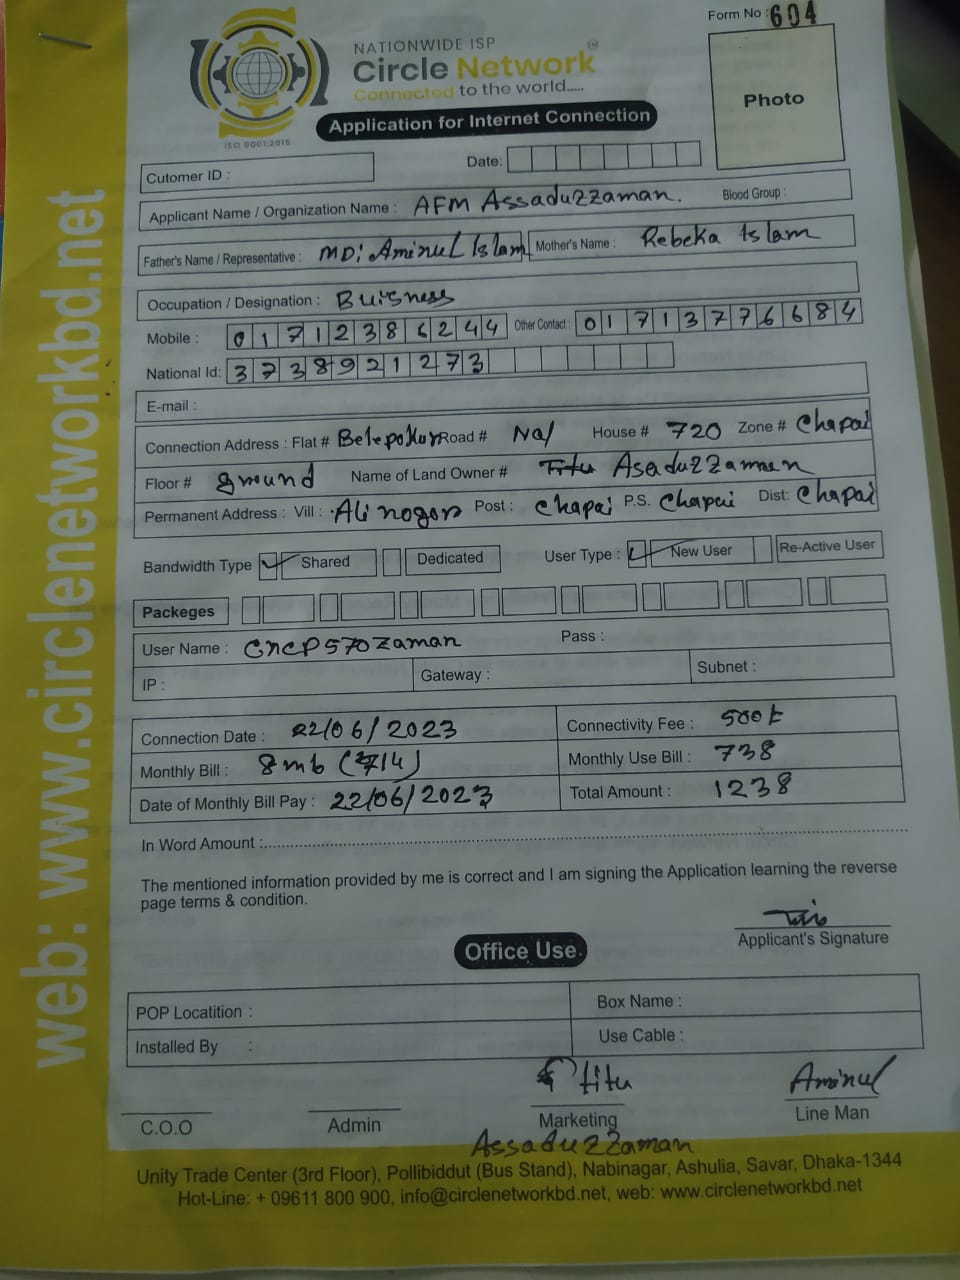 Form No : 604
NATIONWIDE ISP
Circle Network
Connected to the world.....
ISO 9001:2015
Application for Internet Connection
Photo
Cutomer ID :
Date:
Applicant Name / Organization Name : AFM Assaduzzaman. Blood Group :
Father's Name / Representative : MD: Aminul Islam Mother's Name : Rebeka Islam
Occupation / Designation : Buisness
Mobile : 01712386244 Other Contact : 01713776684
National Id: 3738921273
E-mail :
Connection Address : Flat # Belepokur Road # Na/ House # 720 Zone # Chapai
Floor # ground Name of Land Owner # Titu Asaduzzaman
Permanent Address : Vill : Ali nogor Post : Chapai P.S. Chapai Dist: Chapai
Bandwidth Type Shared Dedicated User Type : New User Re-Active User
Packeges
User Name : CNCP570Zaman Pass :
IP : Gateway : Subnet :
Connection Date : 22/06/2023 Connectivity Fee : 500t
Monthly Bill : 8mb (714) Monthly Use Bill : 738
Date of Monthly Bill Pay : 22/06/2023 Total Amount : 1238
In Word Amount :
The mentioned information provided by me is correct and I am signing the Application learning the reverse
page terms & condition.
Applicant's Signature
Office Use
POP Locatition : Box Name :
Installed By : Use Cable :
titu Aminul
C.O.O Admin Marketing Line Man
Assaduzzaman
Unity Trade Center (3rd Floor), Pollibiddut (Bus Stand), Nabinagar, Ashulia, Savar, Dhaka-1344
Hot-Line: + 09611 800 900, info@circlenetworkbd.net, web: www.circlenetworkbd.net
web: www.circlenetworkbd.net